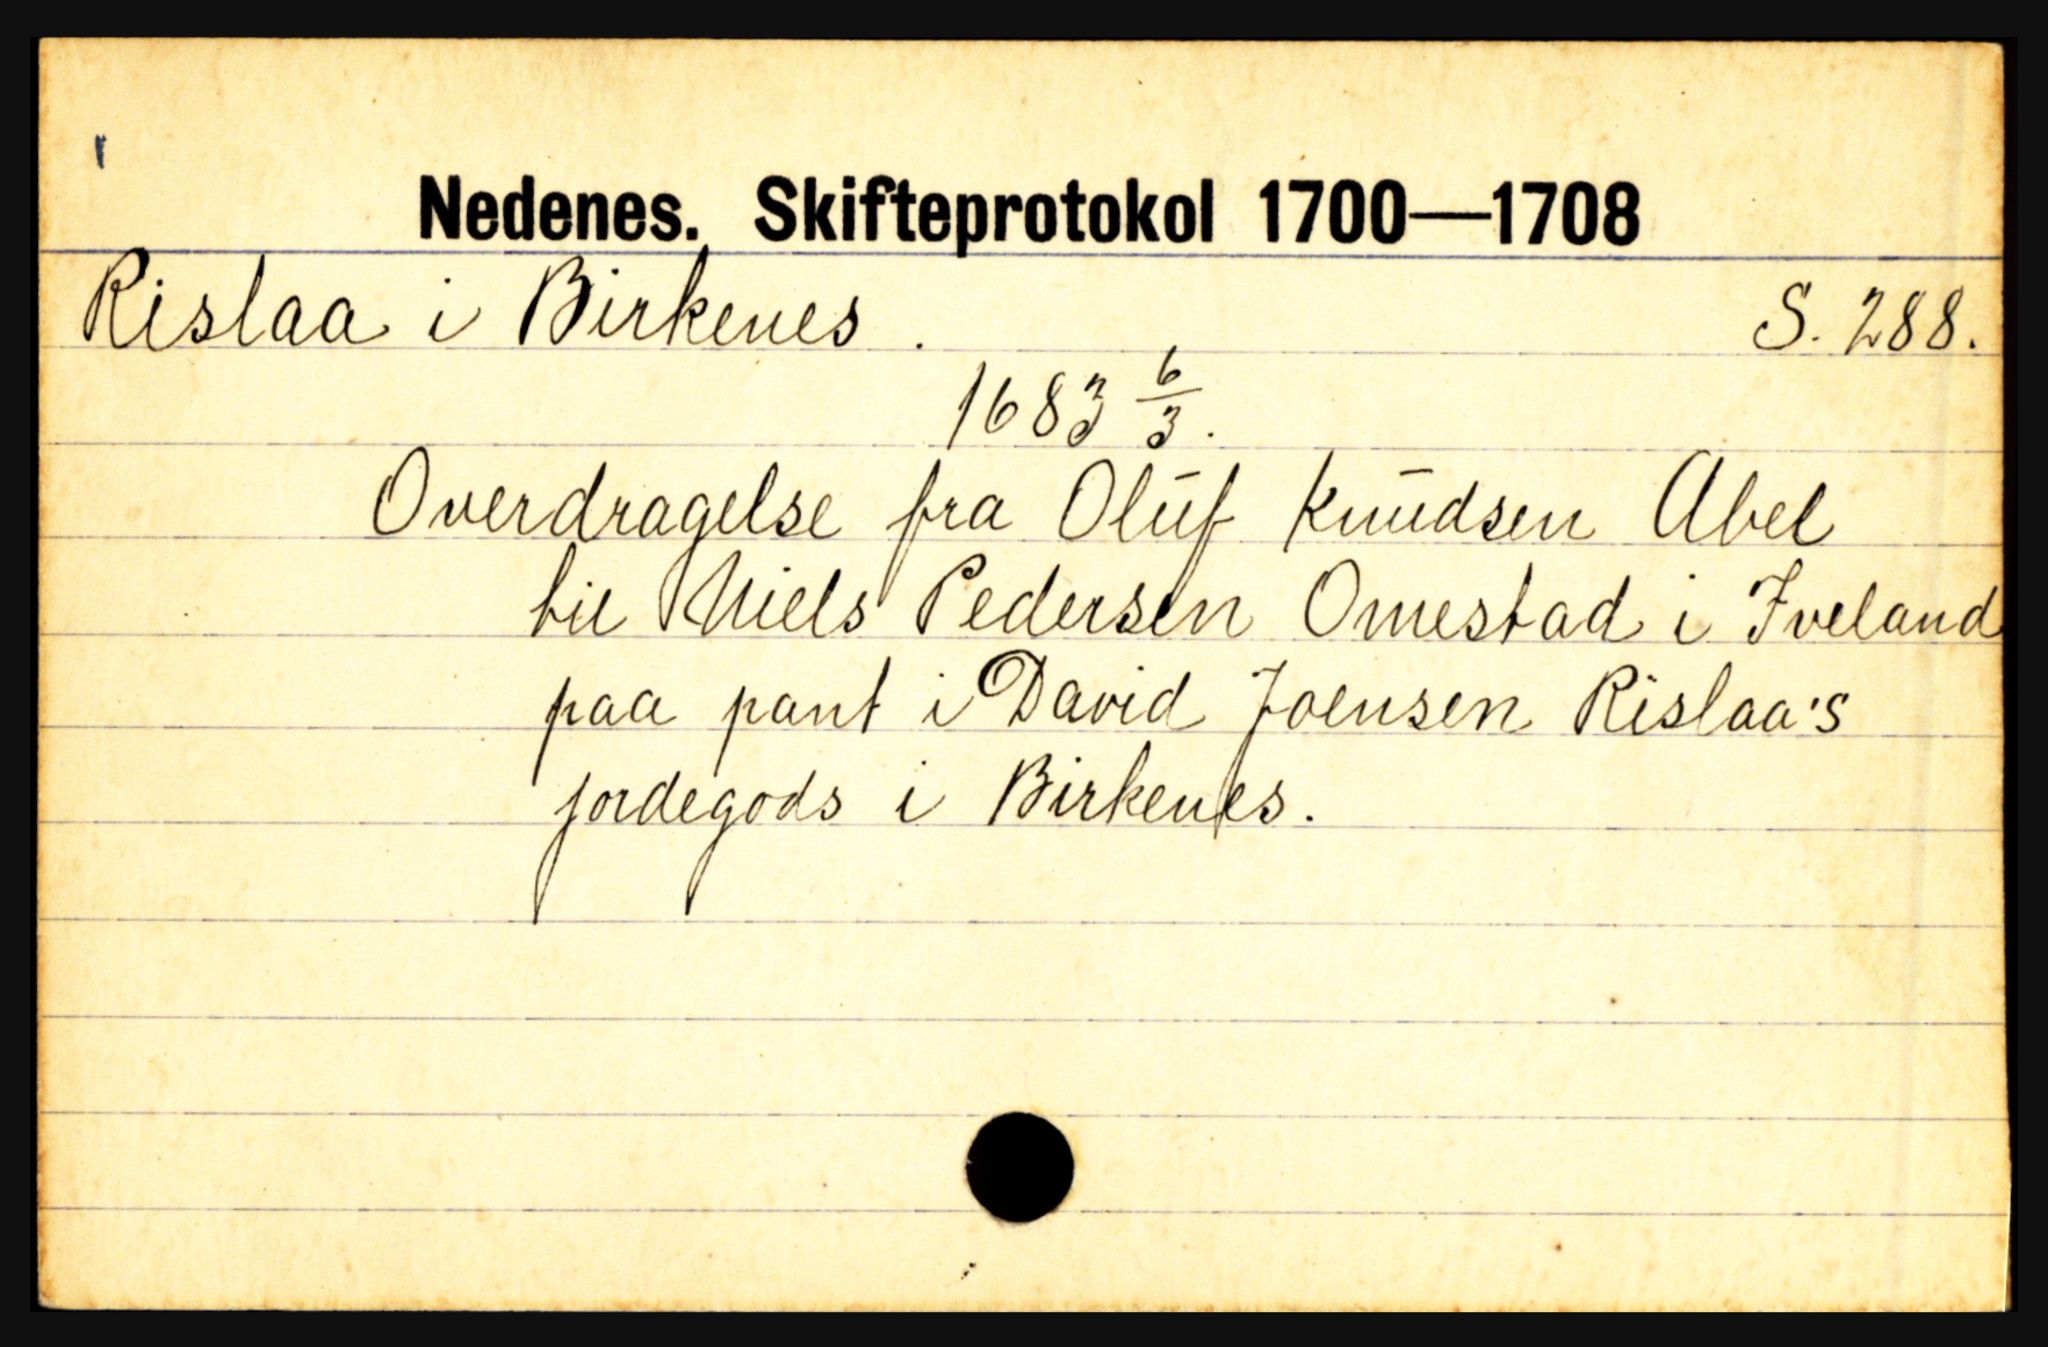 Nedenes. Skifteprotokol 1700—1708
Rislaa i Birkenes. S. 288.
1683 6/3.
Overdragelse fra Oluf Knudsen Abel
til Niels Pedersen Omestad i Iveland
paa pant i David Joensen Rislaa's
jordegods i Birkenes.